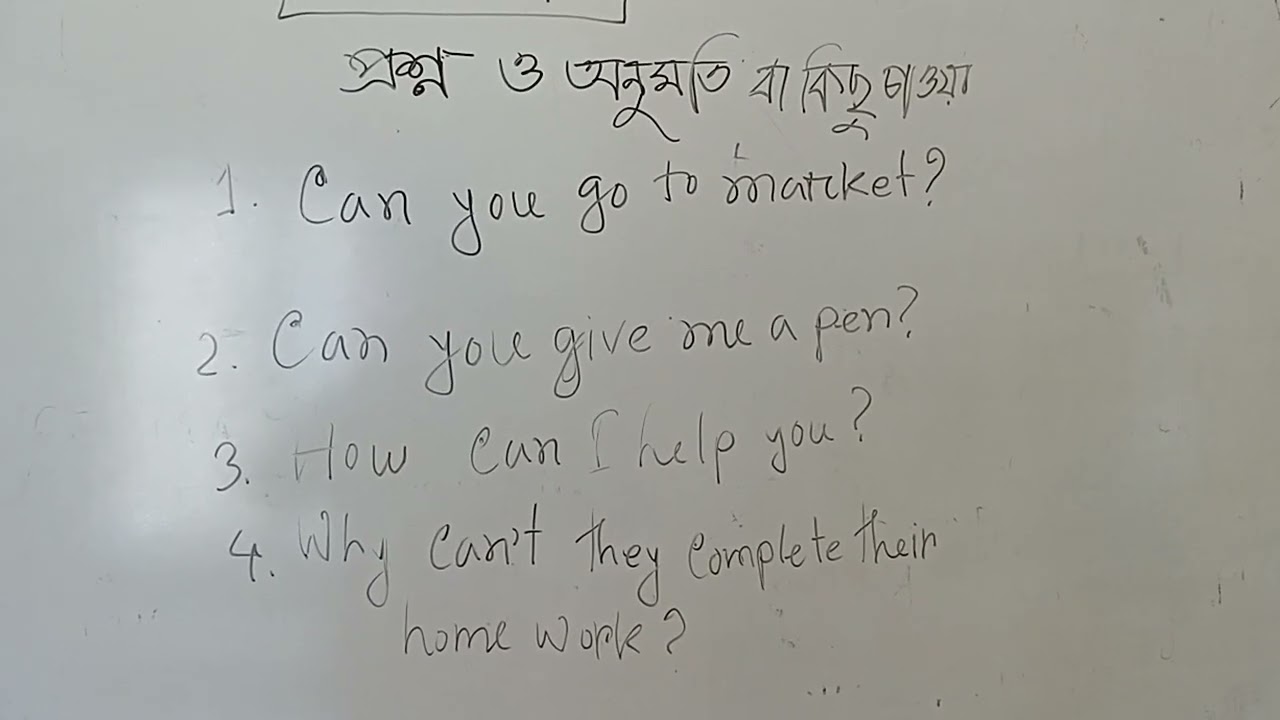 প্রশ্ন ও অনুমতি বা কিছু চাওয়া
1. Can you go to market?
2. Can you give me a pen?
3. How can I help you?
4. Why can't they complete their
home work?